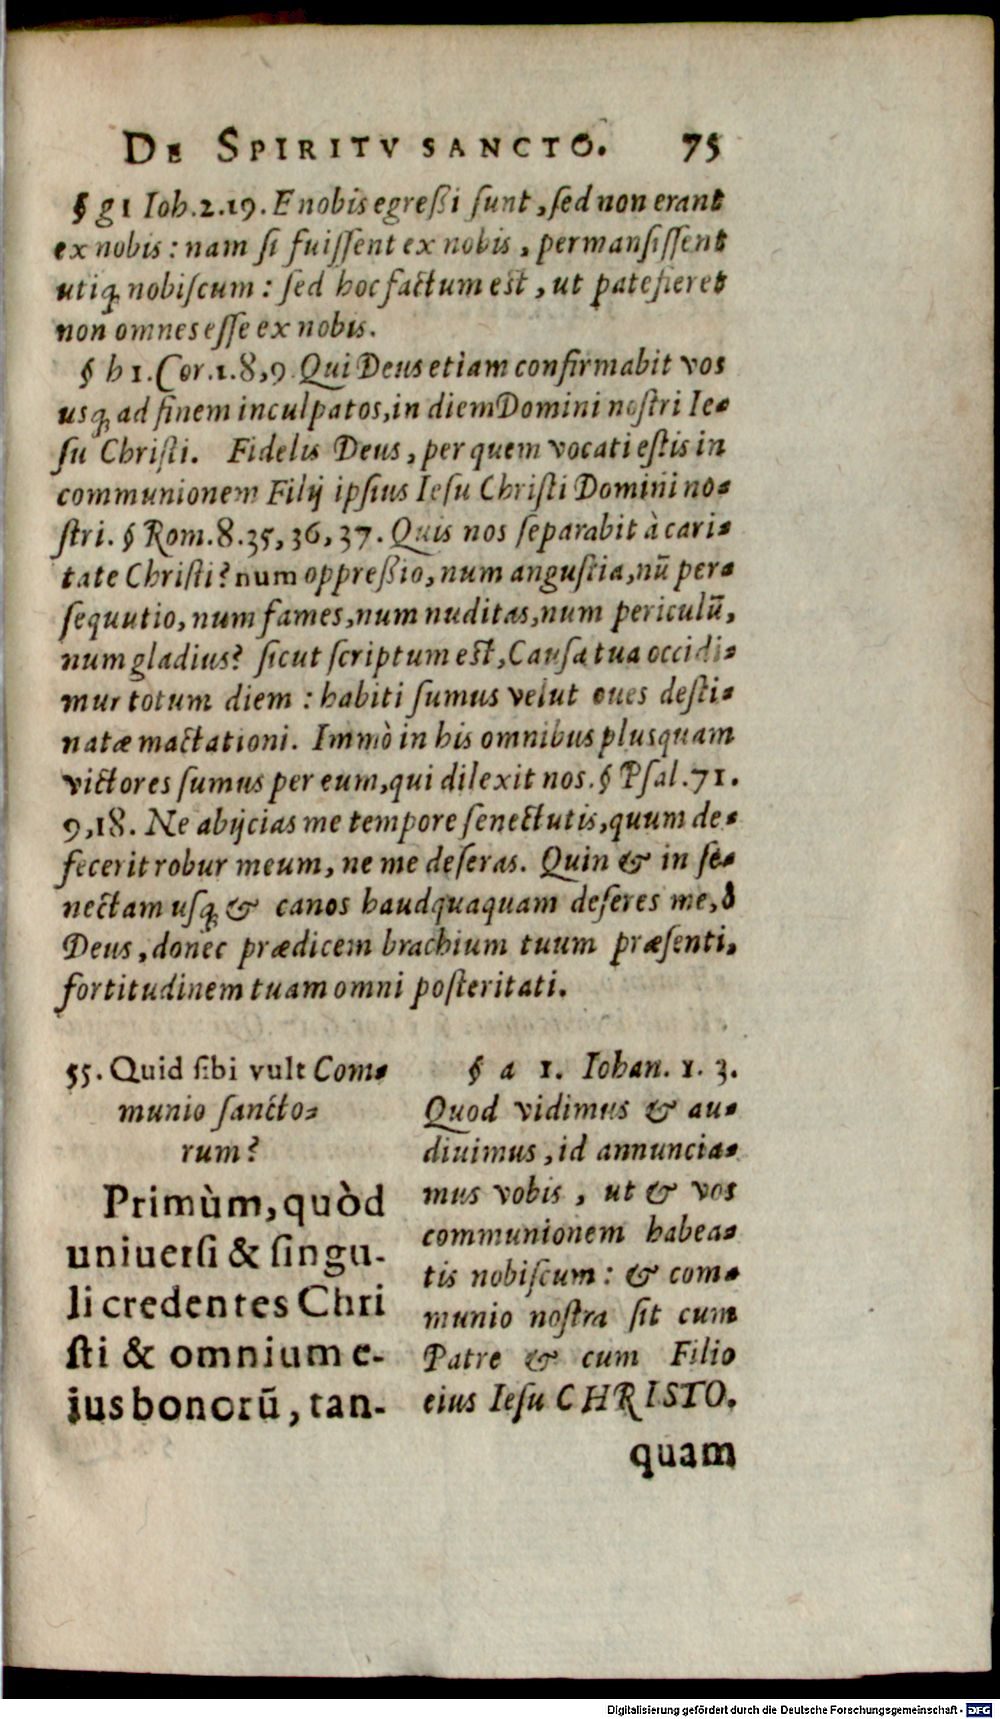 DE SPIRITV SANCTO. 75
§ g 1 Ioh. 2. 19. E nobis egreßi ſunt, ſed non erant
ex nobis: nam ſi fuiſſent ex nobis, permanſiſſent
utiq; nobiſcum: ſed hoc factum est, ut patefieret
non omnes eſſe ex nobis.
§ h 1. Cor. 1. 8, 9 Qui Deus etiam confirmabit vos
usq; ad finem inculpatos, in diem Domini noſtri Ie-
ſu Chriſti. Fidelis Deus, per quem vocati eſtis in
communionem Filij ipſius Ieſu Chriſti Domini no-
ſtri. § Rom. 8. 35, 36, 37. Quis nos ſeparabit à cari-
tate Chriſti? num oppreßio, num anguſtia, nū per-
ſequutio, num fames, num nuditas, num periculū,
num gladius? ſicut ſcriptum est, Cauſa tua occidi-
mur totum diem: habiti ſumus velut oues deſti-
natæ mactationi. Immò in his omnibus plusquam
victores ſumus per eum, qui dilexit nos. § Pſal. 71.
9, 18. Ne abijcias me tempore ſenectutis, quum de-
fecerit robur meum, ne me deſeras. Quin & in ſe-
nectam uſq; & canos haudquaquam deſeres me, ô
Deus, donec prædicem brachium tuum præſenti,
fortitudinem tuam omni poſteritati.
55. Quid ſibi vult Com-
munio ſancto-
rum?
Primùm, quòd
uniuerſi & ſingu-
li credentes Chri
ſti & omnium e-
ius bonorū, tan-
§ a 1. Iohan. 1. 3.
Quod vidimus & au-
diuimus, id annuncia-
mus vobis, ut & vos
communionem habea-
tis nobiſcum: & com-
munio noſtra ſit cum
Patre & cum Filio
eius Ieſu CHRISTO.
quam
Digitalisierung gefördert durch die Deutsche Forschungsgemeinschaft - DFG